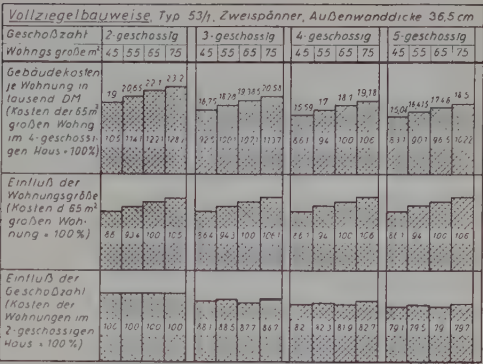 Vollziegelbauweise, Typ 53/1, Zweispänner, Außenwanddicke 36,5 cm
Geschoßzahl 2-geschossig 3-geschossig 4-geschossig 5-geschossig
Wohngs größe m² 45 55 65 75 45 55 65 75 45 55 65 75 45 55 65 75
Gebäudekosten
je Wohnung in
tausend DM
(Kosten der 65 m²
großen Wohng
im 4-geschossi
gen Haus = 100%)
19 20,65 22,1 23,2
16,75 19,85 20,58
15,59 17 18,1 19,18
15,04 17,46 18,5
105 114,1 122,1
86,1 94 100 106
83,1 90,1 96,5 102,2
Einfluß der
Wohnungsgröße
(Kosten d 65 m²
großen Woh-
nung = 100%)
86 93,4 100 105
86,4 94,3 100
86,1 94 100 106
86,1 94 100 106
Einfluß der
Geschoßzahl
(Kosten der
Wohnungen im
2-geschossigen
Haus = 100%)
100 100 100 100
88,1 88,5 87,7 88,7
82 82,3 81,9 82,7
79,1 79,5 79 79,7